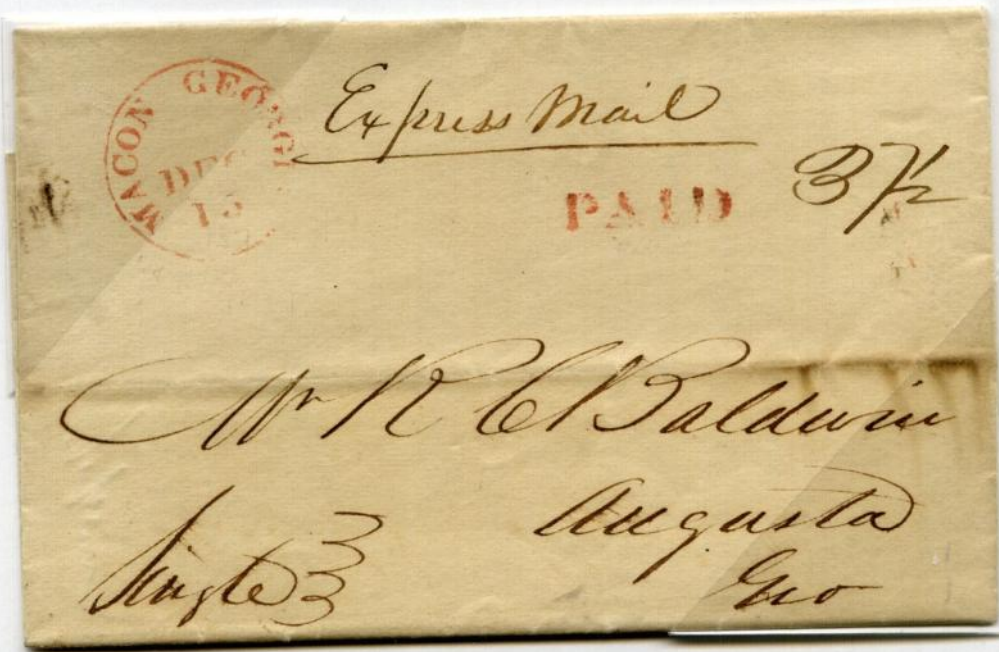 MACON GEORGI
DEC
13
Express Mail
PAID
37½
Mr R C Baldwin
Augusta
Geo
Single